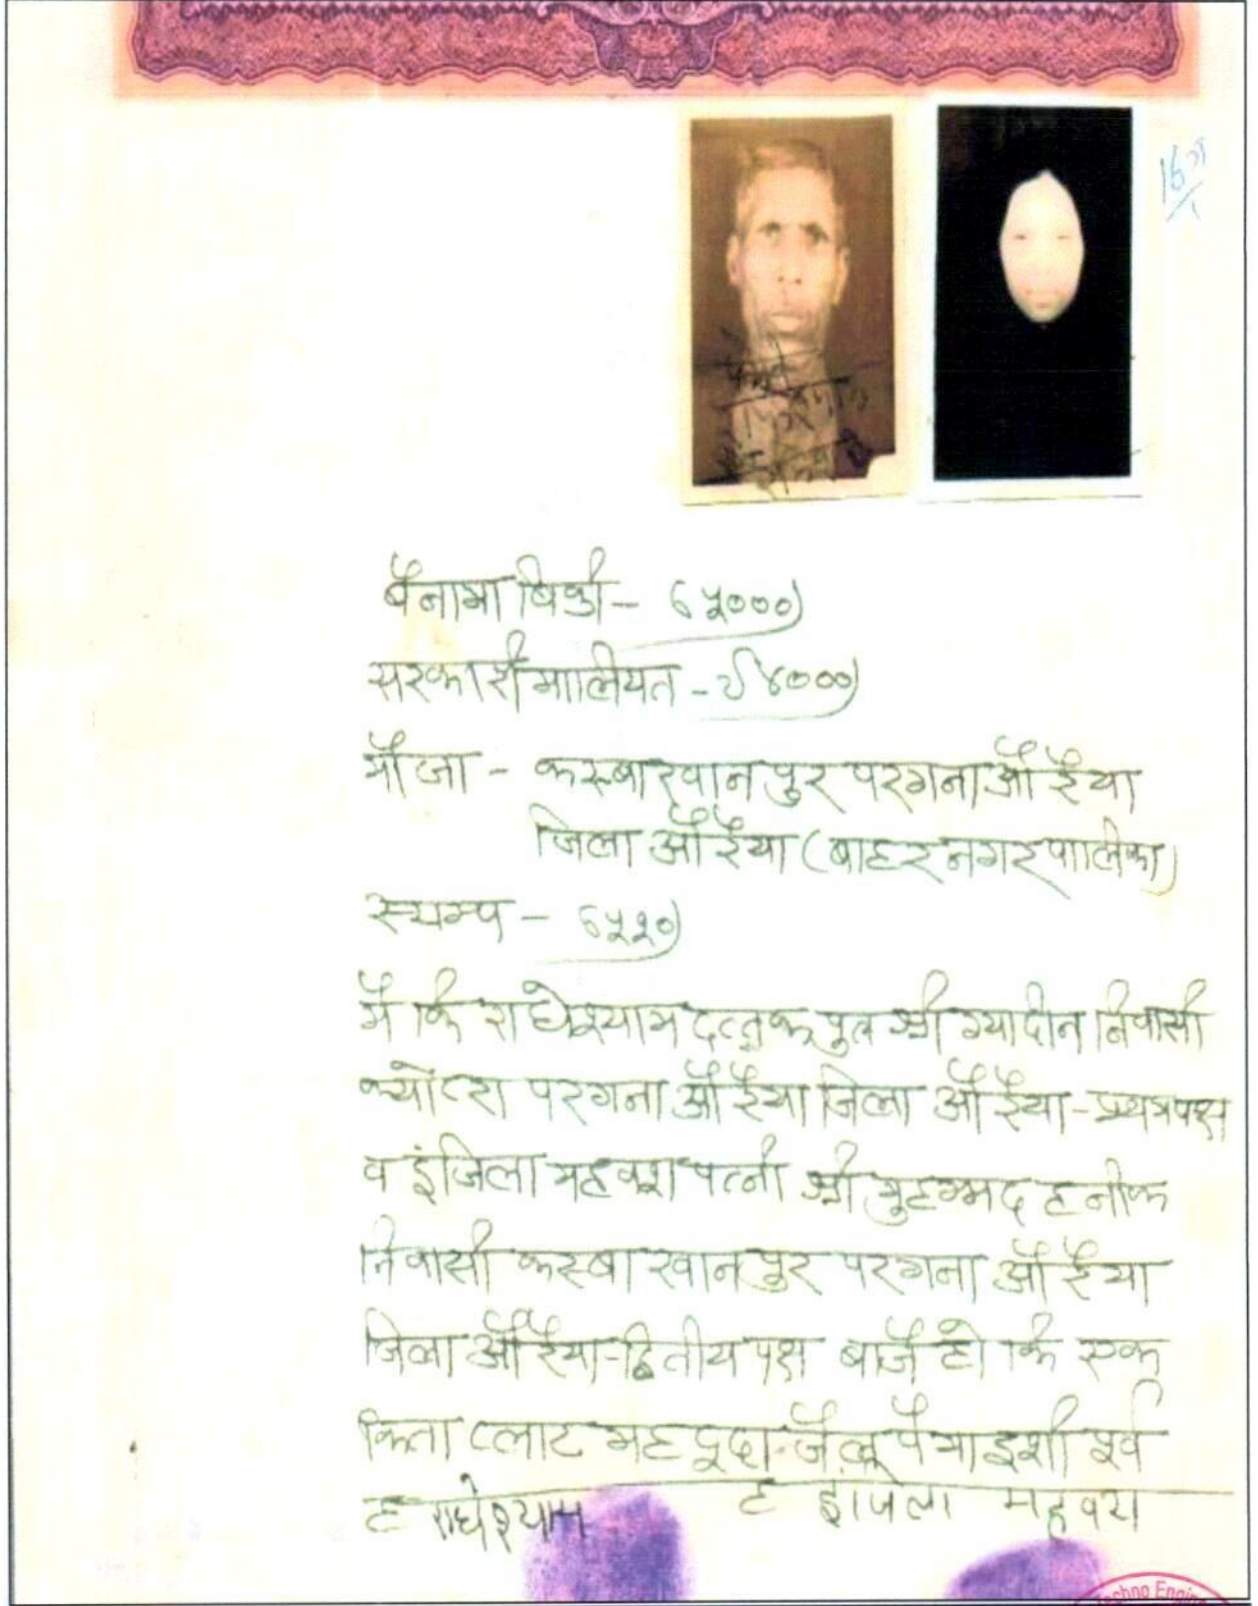 16
बैनामा बिक्री - ६५०००)
सरकारी मालियत - ७४०००)
मौजा - कस्बा खानपुर परगना औरैया
जिला औरैया (बाहर नगर पालिका)
स्टाम्प - ६५२०)
मै कि राधेश्याम दत्तक पुत्र श्री ग्यादीन निवासी
क्योटरा परगना औरैया जिला औरैया - प्रथम पक्ष
व इंजिला महवश पत्नी श्री मुहम्मद हनीफ
निवासी कस्बा खानपुर परगना औरैया
जिला औरैया - द्वितीय पक्ष बाजै हो कि एक
किता प्लाट महदूदा जैल पैमाइशी पूर्व
ह राधेश्याम ह इंजिला महवश
Techno Engine